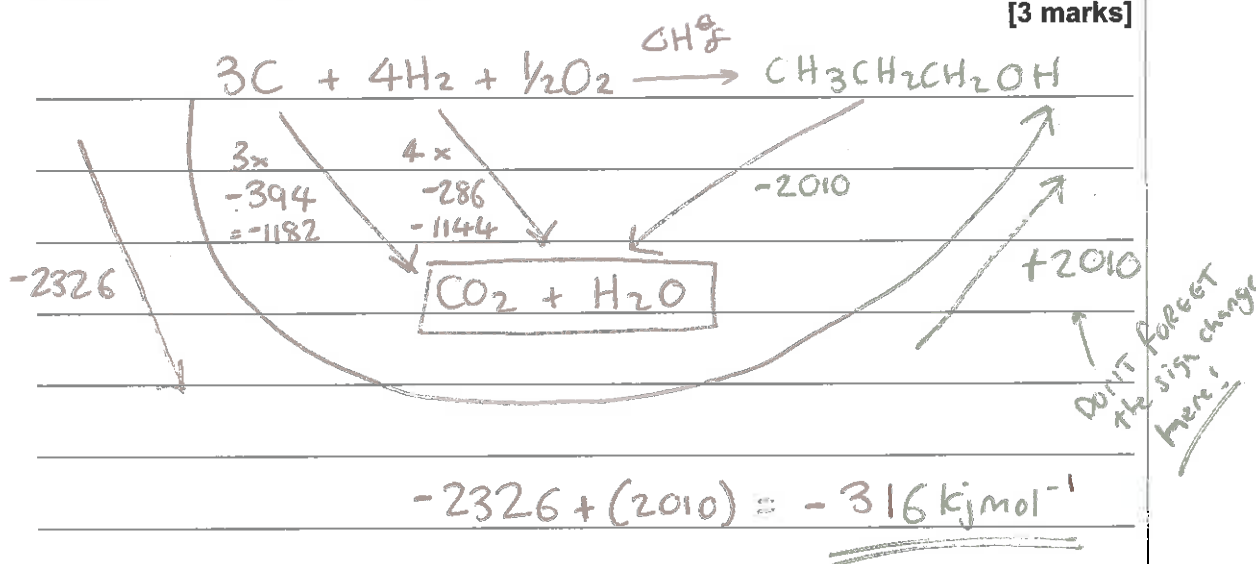 [3 marks]
ΔH⦵f
3C + 4H2 + 1/2O2 → CH3CH2CH2OH
3x
-394
=-1182
4 x
-286
-1144
-2010
-2326
CO2 + H2O
+2010
DONT FORGET
the sign change
here!
-2326 + (2010) = -316 kjmol-1